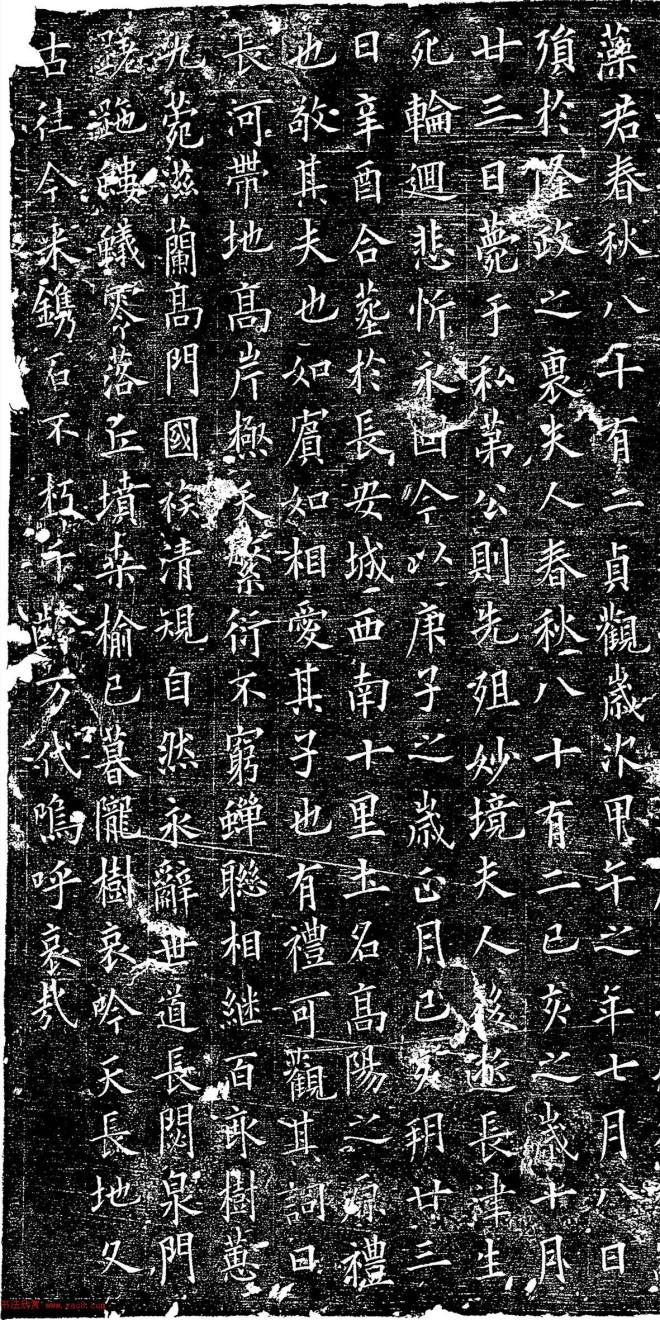 藻君春秋八十有二貞觀歲次甲午之年七月八日
殞於隆政之裏夫人春秋八十有二己亥之歲十月
廿三日薨于私第公則先殂妙境夫人後逝長津生
死輪迴悲忻永由今以庚子之歲正月己亥玥廿三
日辛酉合塟於長安城西南十里土名高陽之原禮
也敬其夫也如賓如相愛其子也有禮可觀其詞曰
長河帶地高岸極天繁衍不窮蟬聯相継百郎樹蕙
九菀滋蘭高門國族清䂓自然永辭世道長閟泉門
螻蟻零落丘墳桒榆已暮隴樹哀吟天長地久
古往今来鐫石不朽千齡万代嗚呼哀哉
书法欣赏 www.yac8.com